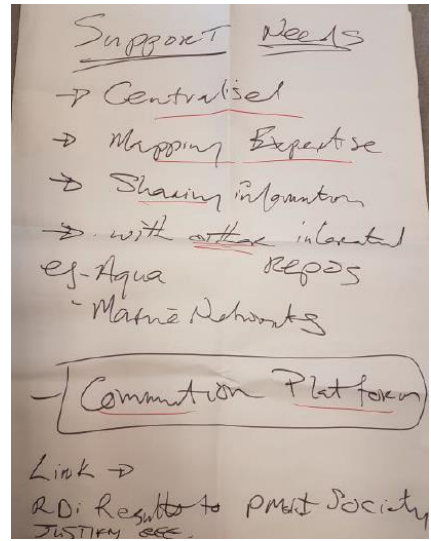 Support Needs
→ Centralised
→ Mapping Expertise
→ Sharing information
→ with other
eg - Aqua Repos
- Marine Networks
- Commution Platform
Link →
RDi Results to Society
JUSTIFY